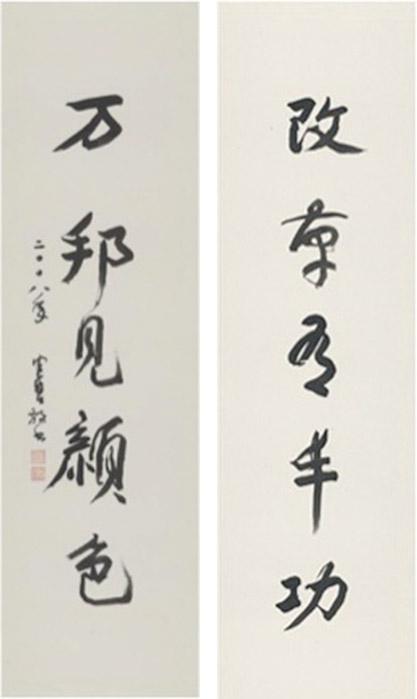 改革有丰功
万邦见颜色
二〇〇八年